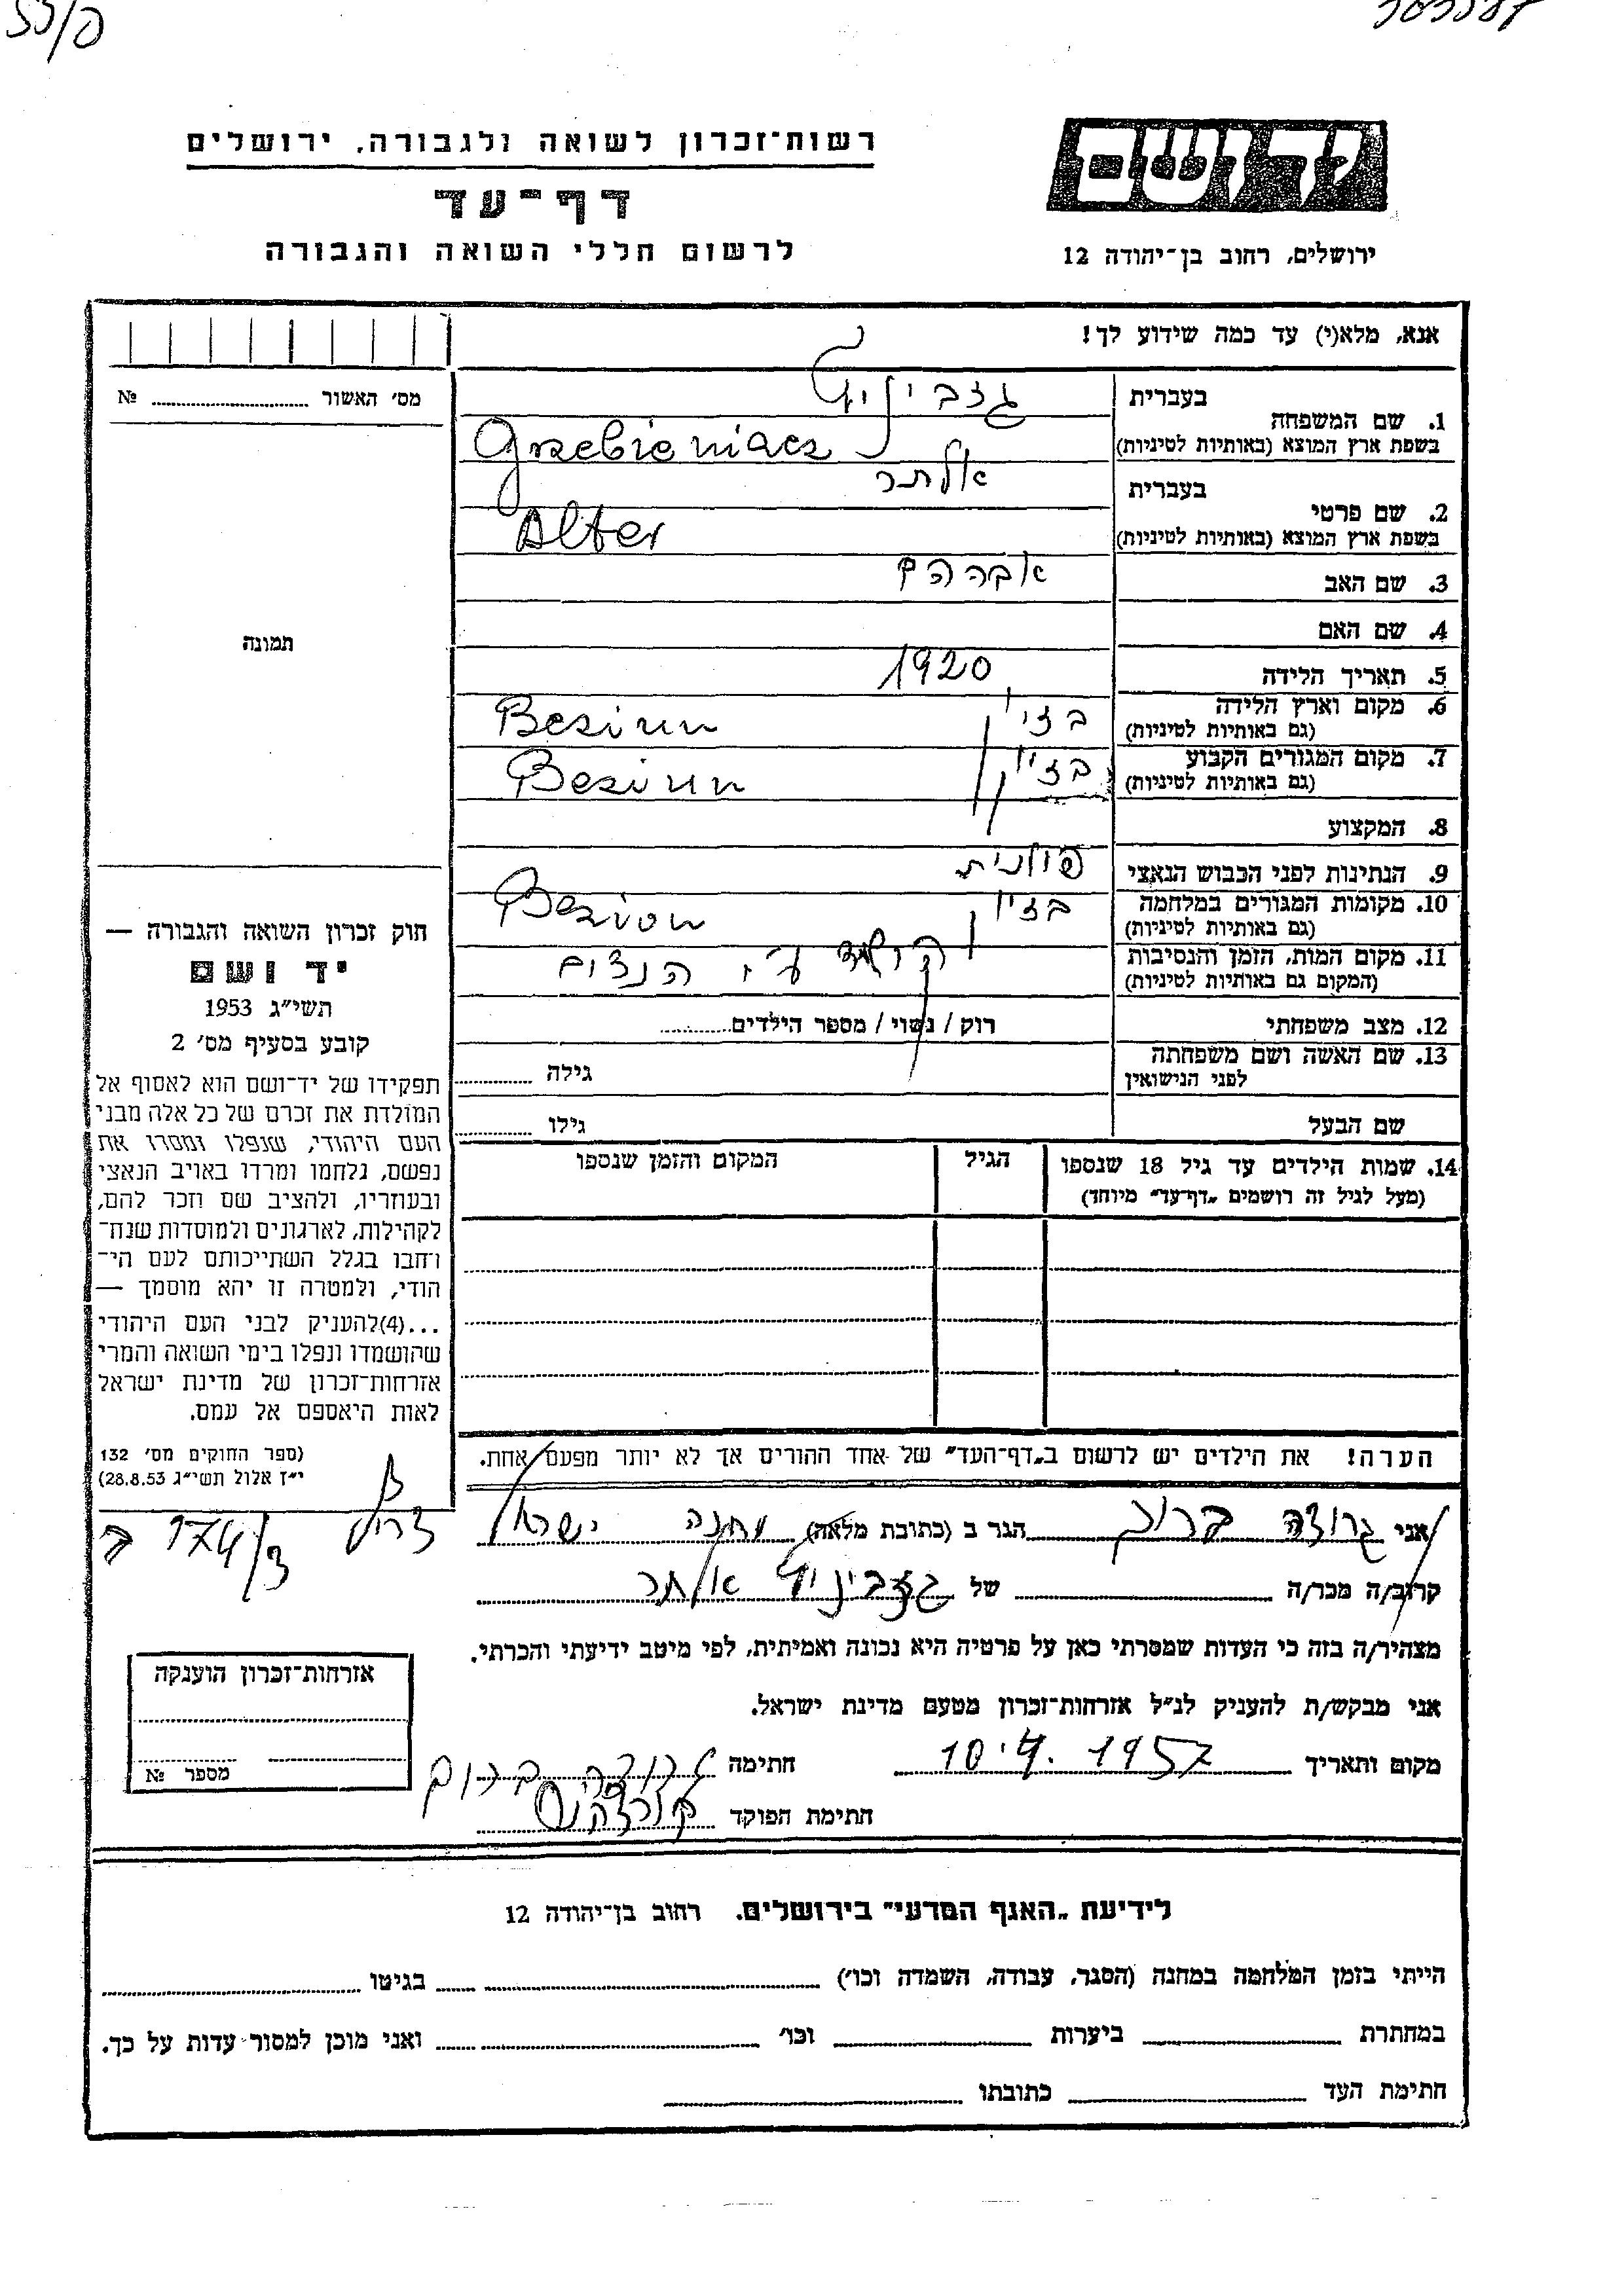 רשות־זכרון לשואה ולגבורה, ירושלים
דף־עד
לרשום חללי השואה והגבורה
יד ושם
ירושלים, רחוב בן־יהודה 12
אנא, מלא(י) עד כמה שידוע לך!
מס׳ האשור № 
בעברית
1. שם המשפחה
בשפת ארץ המוצא (באותיות לטיניות) Grzebieniacz
בעברית אלתר
2. שם פרטי
בשפת ארץ המוצא (באותיות לטיניות) Alter
3. שם האב אברהם
4. שם האם
5. תאריך הלידה 1920
6. מקום וארץ הלידה בזין Besiun
(גם באותיות לטיניות)
7. מקום המגורים הקבוע בזין Besiun
(גם באותיות לטיניות)
8. המקצוע
9. הנתינות לפני הכבוש הנאצי פולנית
10. מקומות המגורים במלחמה בזין
(גם באותיות לטיניות)
11. מקום המות, הזמן והנסיבות ע״י הנצים
(המקום גם באותיות לטיניות)
12. מצב משפחתי רוק / נשוי / מספר הילדים
13. שם האשה ושם משפחתה גילה
לפני הנישואין
שם הבעל גילו
תמונה
חוק זכרון השואה והגבורה —
יד ושם
תשי״ג 1953
קובע בסעיף מס׳ 2
תפקידו של יד־ושם הוא לאסוף אל
המולדת את זכרם של כל אלה מבני
העם היהודי, שנפלו ומסרו את
נפשם, נלחמו ומרדו באויב הנאצי
ובעוזריו, ולהציב שם וזכר להם,
לקהילות, לארגונים ולמוסדות שנח־
רחבו בגלל השתייכותם לעם הי־
הודי, ולמטרה זו יהא מוסמך —
...(4)להעניק לבני העם היהודי
שהושמדו ונפלו בימי השואה והמרי
אזרחות־זכרון של מדינת ישראל
לאות היאספם אל עמם.
(ספר החוקים מס׳ 132
י״ז אלול תשי״ג 28.8.53)
14. שמות הילדים עד גיל 18 שנספו הגיל המקום והזמן שנספו
(מעל לגיל זה רושמים „דף־עד״ מיוחד)
הערה! את הילדים יש לרשום ב„דף־העד״ של אחד ההורים אך לא יותר מפעם אחת.
אני ברוך הגר ב (כתובת מלאה) מחנה ישראל
קרוב/ה מכר/ה של אלתר
מצהיר/ה בזה כי העדות שמסרתי כאן על פרטיה היא נכונה ואמיתית, לפי מיטב ידיעתי והכרתי.
אני מבקש/ת להעניק לנ״ל אזרחות־זכרון מטעם מדינת ישראל.
מקום ותאריך 10.4.1957 חתימה ברוך
חתימת הפוקד
אזרחות־זכרון הוענקה
מספר №
לידיעת „האגף המדעי״ בירושלים. רחוב בן־יהודה 12
הייתי בזמן המלחמה במחנה (הסגר, עבודה, השמדה וכו׳) בגיטו
במחתרת ביערות וכו׳ ואני מוכן למסור עדות על כך.
חתימת העד כתובתו